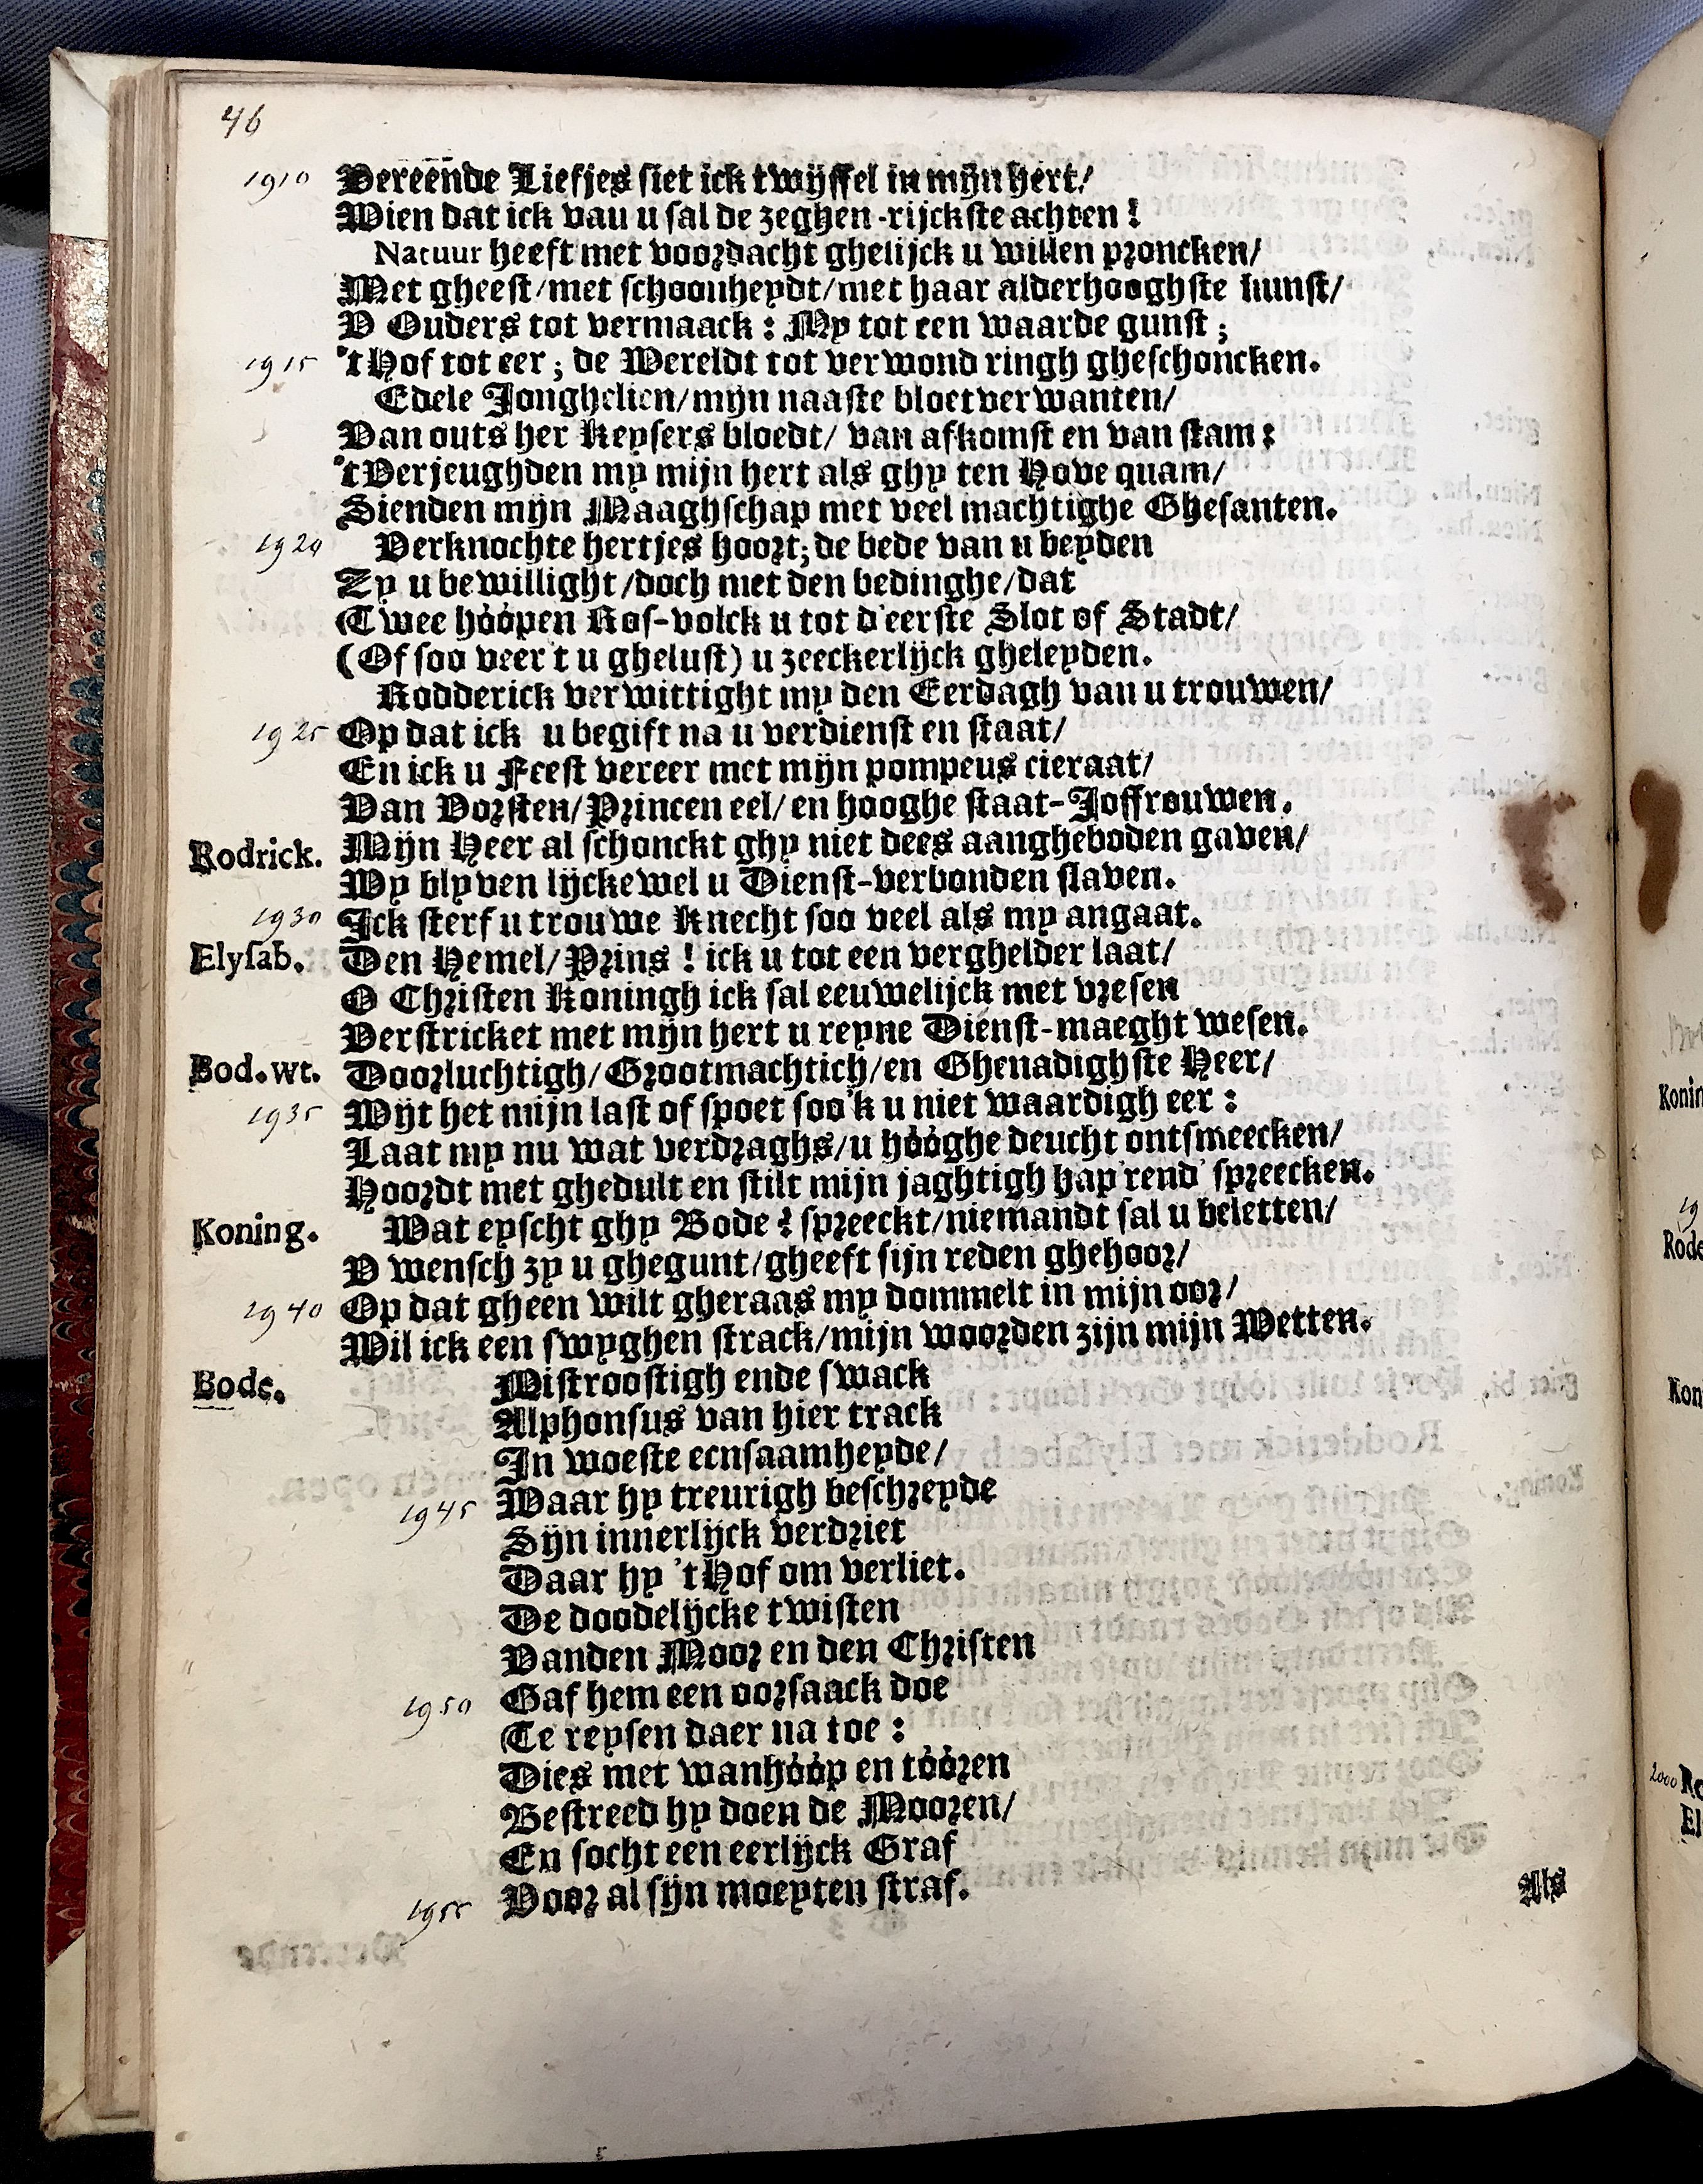 46
1910 Vereende Liefjes siet ick twijffel in mijn hert/
Wien dat ick vau u sal de zeghen-rijckste achten!
Natuur heeft met voordacht ghelijck u willen proncken/
Met gheest/met schoonheydt/met haar alderhooghste kunst/
V Ouders tot vermaack: My tot een waarde gunst;
1915 'tHof tot eer; de Wereldt tot verwond ringh gheschoncken.
Edele Jonghelien/mijn naaste bloetverwanten/
Van outs her Keysers bloedt/ van afkomst en van stam:
'tVerjeughden my mijn hert als ghy ten Hove quam/
Sienden mijn Maaghschap met veel machtighe Ghesanten.
1920 Verknochte hertjes hoort; de bede van u beyden
Zy u bewillight/doch met den bedinghe/dat
Twee hóópen Ros-volck u tot d'eerste Slot of Stadt/
(Of soo veer t u ghelust) u zeeckerlijck gheleyden.
Rodderick verwittight my den Eerdagh van u trouwen/
1925 Op dat ick u begift na u verdienst en staat/
En ick u Feest vereer met mijn pompeus cieraat/
Van Vorsten/Princen eel/en hooghe staat-Joffrouwen.
Rodrick. Mijn Heer al schonckt ghy niet dees aangheboden gaven/
Wy blyven lijckewel u Dienst-verbonden slaven.
1930 Ick sterf u trouwe Knecht soo veel als my angaat.
Elysab. Den Hemel/Prins! ick u tot een verghelder laat/
O Christen Koningh ick sal eeuwelijck met vresen
Verstricket met mijn hert u reyne Dienst-maeght wesen.
Bod.wt. Doorluchtigh/Grootmachtich/en Ghenadighste Heer/
1935 Wijt het mijn last of spoet soo'k u niet waardigh eer:
Laat my nu wat verdraghs/u hóóghe deucht ontsmeecken/
Hoordt met ghedult en stilt mijn jaghtigh hap'rend' spreecken.
Koning. Wat eyscht ghy Bode? spreeckt/niemandt sal u beletten/
V wensch zy u ghegunt/gheeft sijn reden ghehoor/
1940 Op dat gheen wilt gheraas my dommelt in mijn oor/
Wil ick een swyghen strack/mijn woorden zijn mijn Wetten.
Bode. Mistroostigh ende swack
Alphonsus van hier track
In woeste eensaamheyde/
1945 Waar hy treurigh beschreyde
Sijn innerlijck verdriet
Daar hy 'tHof om verliet.
De doodelijcke twisten
Vanden Moor en den Christen
1950 Gaf hem een oorsaack doe
Te reysen daer na toe:
Dies met wanhóóp en tóóren
Bestreed hy doen de Mooren/
En socht een eerlijck Graf
1955 Voor al sijn moeyten straf.
Als
Konin
19
Rode
Kon
2000 Ro
El